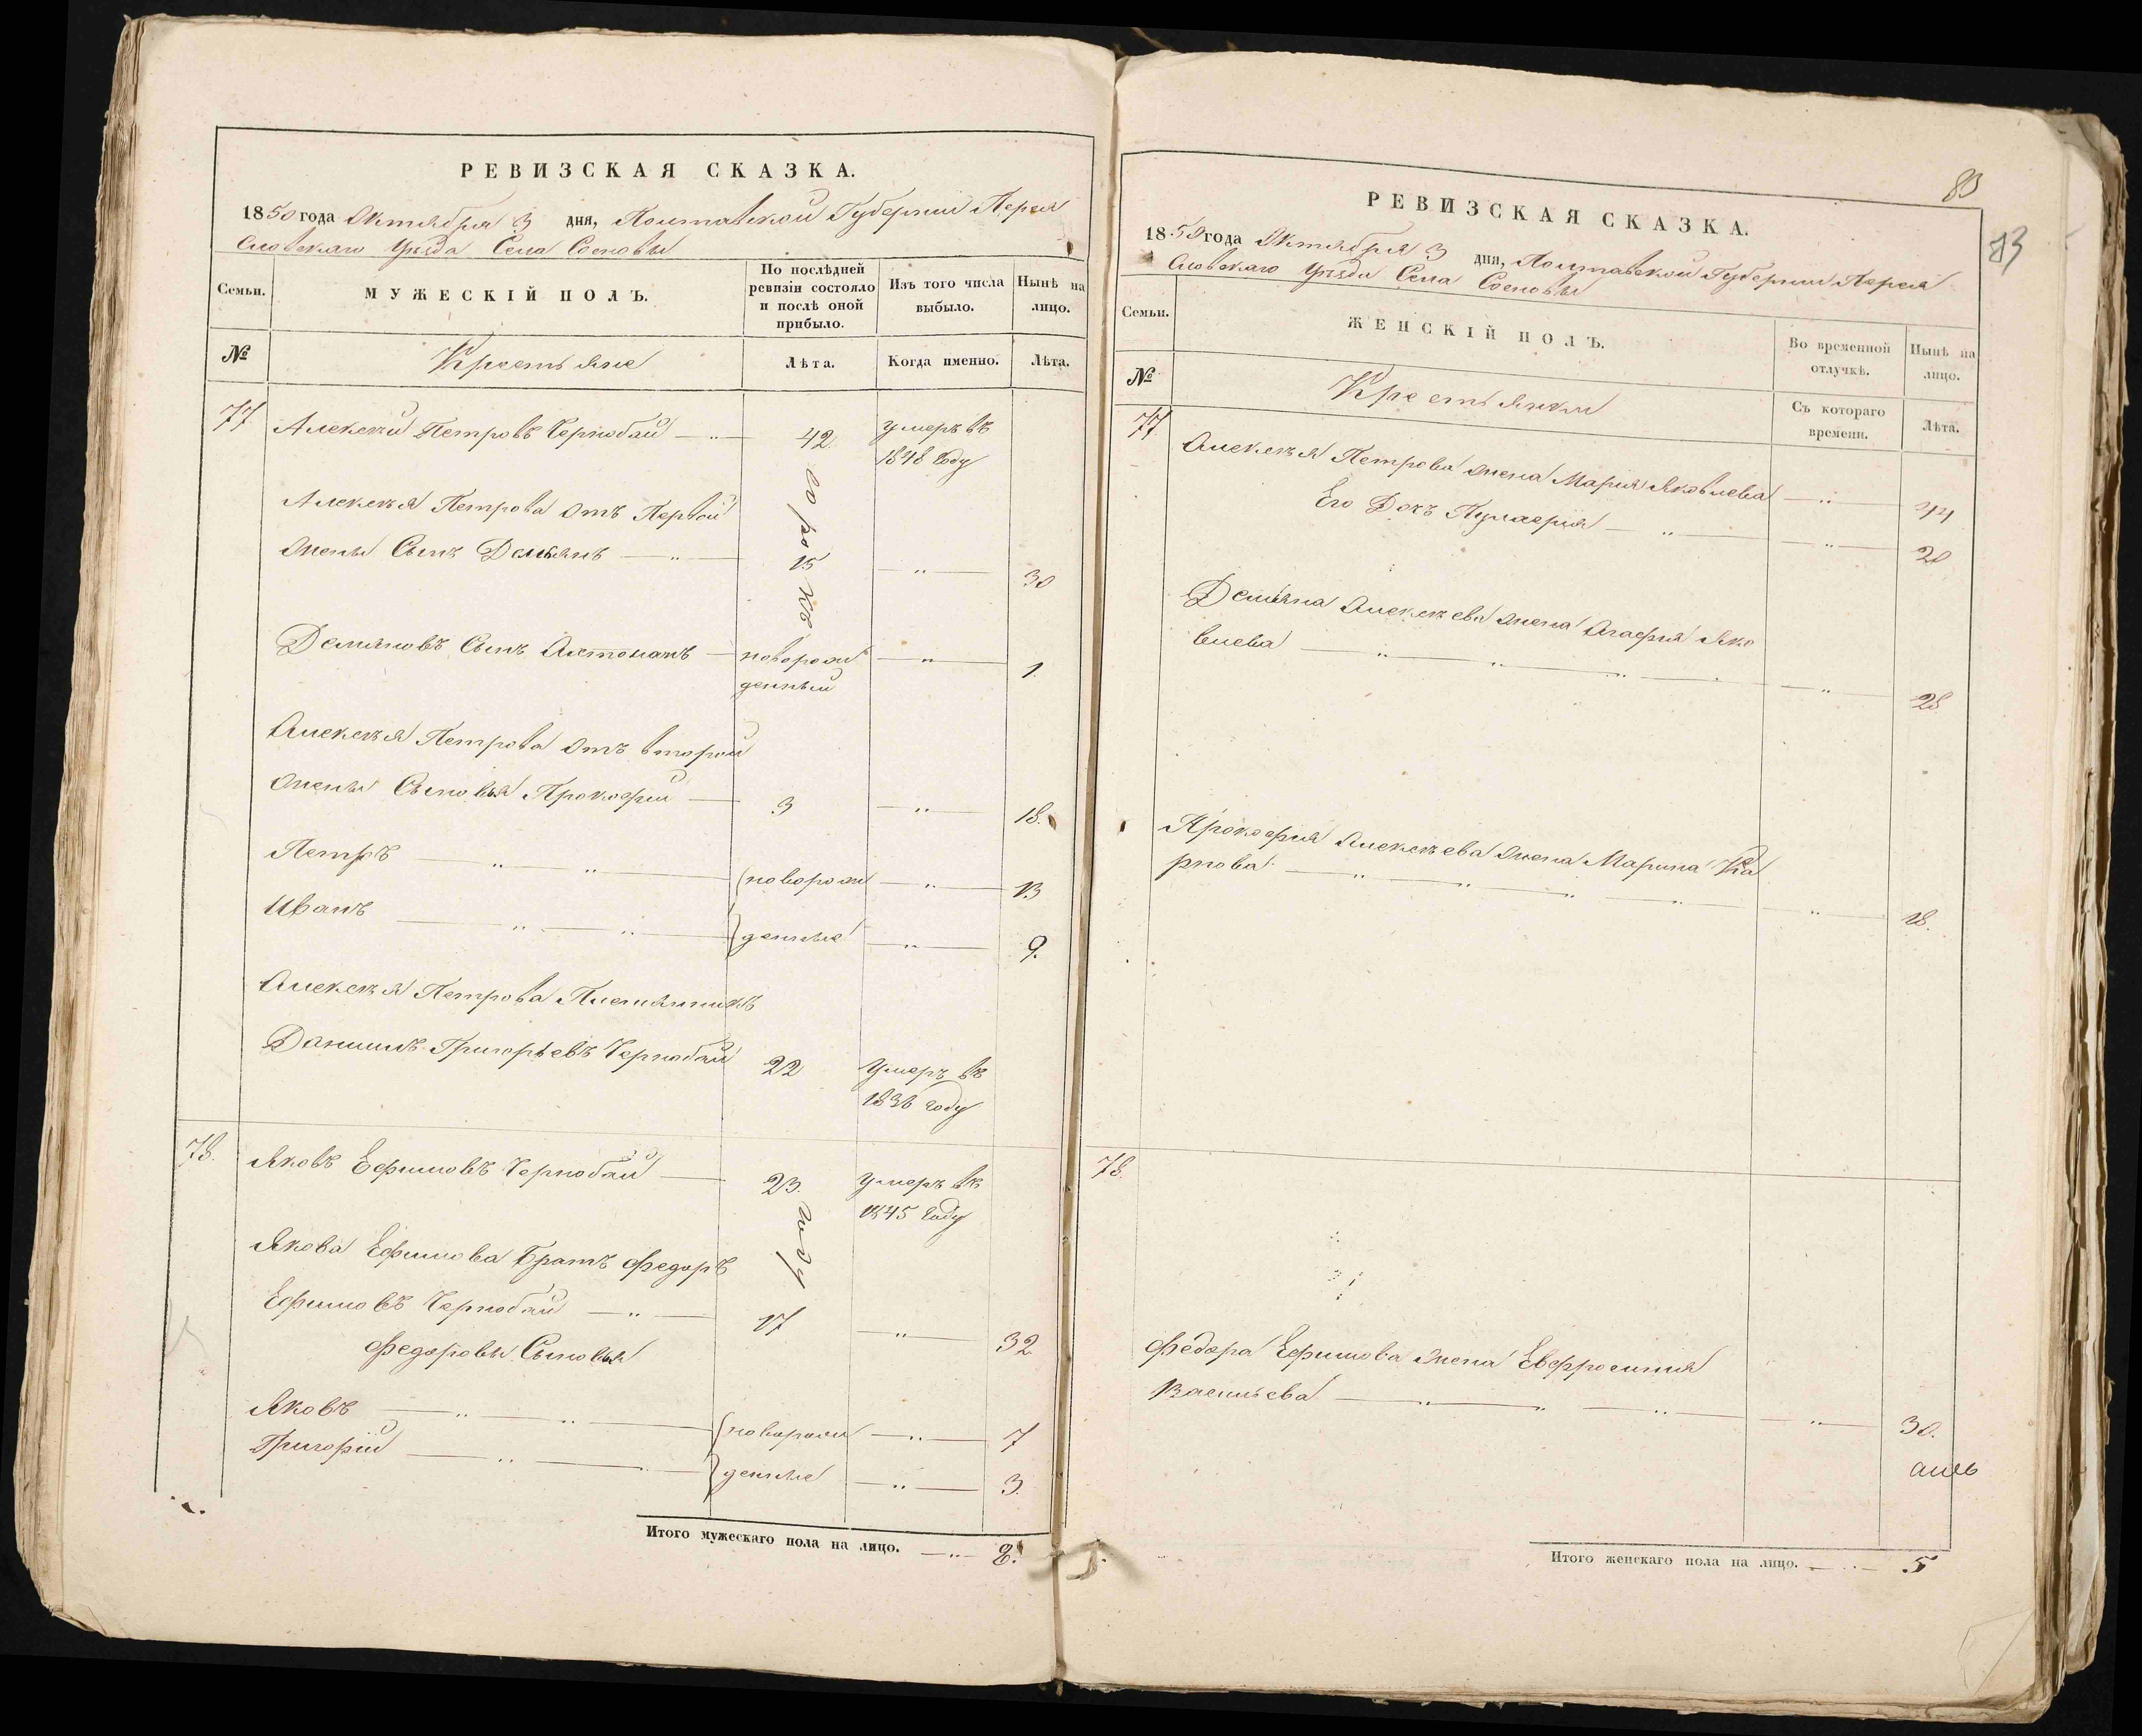 РЕВИЗСКАЯ СКАЗКА.
1850 года Октября 3 дня, Полтавской Губернии Перея
Словскаго Уѣзда Села Сосновы
Семьи.
МУЖЕСКІЙ ПОЛЪ.
По послѣдней ревизіи состояло и послѣ оной прибыло.
Изъ того числа выбыло.
Нынѣ на лицо.
№
Крестьяне
Лѣта.
Когда именно.
Лѣта.
77 Алексѣй Петровъ Чернобай 42. умеръ въ
1848 году
Алексѣя Петрова отъ Первой
жены Сынъ Демьянъ 15 30
Демяновъ Сынъ новорож 1.
денный
Алексѣя Петрова отъ второй
жены Сыновья Прокофій 3 18.
Петръ новорож 13
Иванъ денные 9.
Алексѣя Петрова Племянникъ
Даниилъ Григорьевъ Чернобай 22 Умеръ въ
1836 году
78. Яковъ Ефимовъ Чернобай 23. умеръ въ
1845 году
Якова Ефимова Братъ Федоръ
Ефимовъ Чернобай 17 32
Федоровы Сыновья
Яковъ новорож 7
Григорій денные 3.
Итого мужескаго пола на лицо. 8.
83
83
РЕВИЗСКАЯ СКАЗКА.
1850 года Октября 3 дня, Полтавской Губернии Перея
Словскаго Уѣзда Села Сосновы
Семьи.
ЖЕНСКІЙ ПОЛЪ.
Во временной отлучкѣ.
Нынѣ на лицо.
№
Крестьянки
Съ котораго времени.
Лѣта.
77. Алексѣя Петрова жена Мария Яковлева 44
Его Дочь 20
Демьяна Алексѣева жена Агафия Яко
влева 28
Прокофия Алексѣева жена Марина Ка
рпова 18.
78.
Федора Ефимова жена Евфросиния
Васильева 30.
Итого женскаго пола на лицо. 5